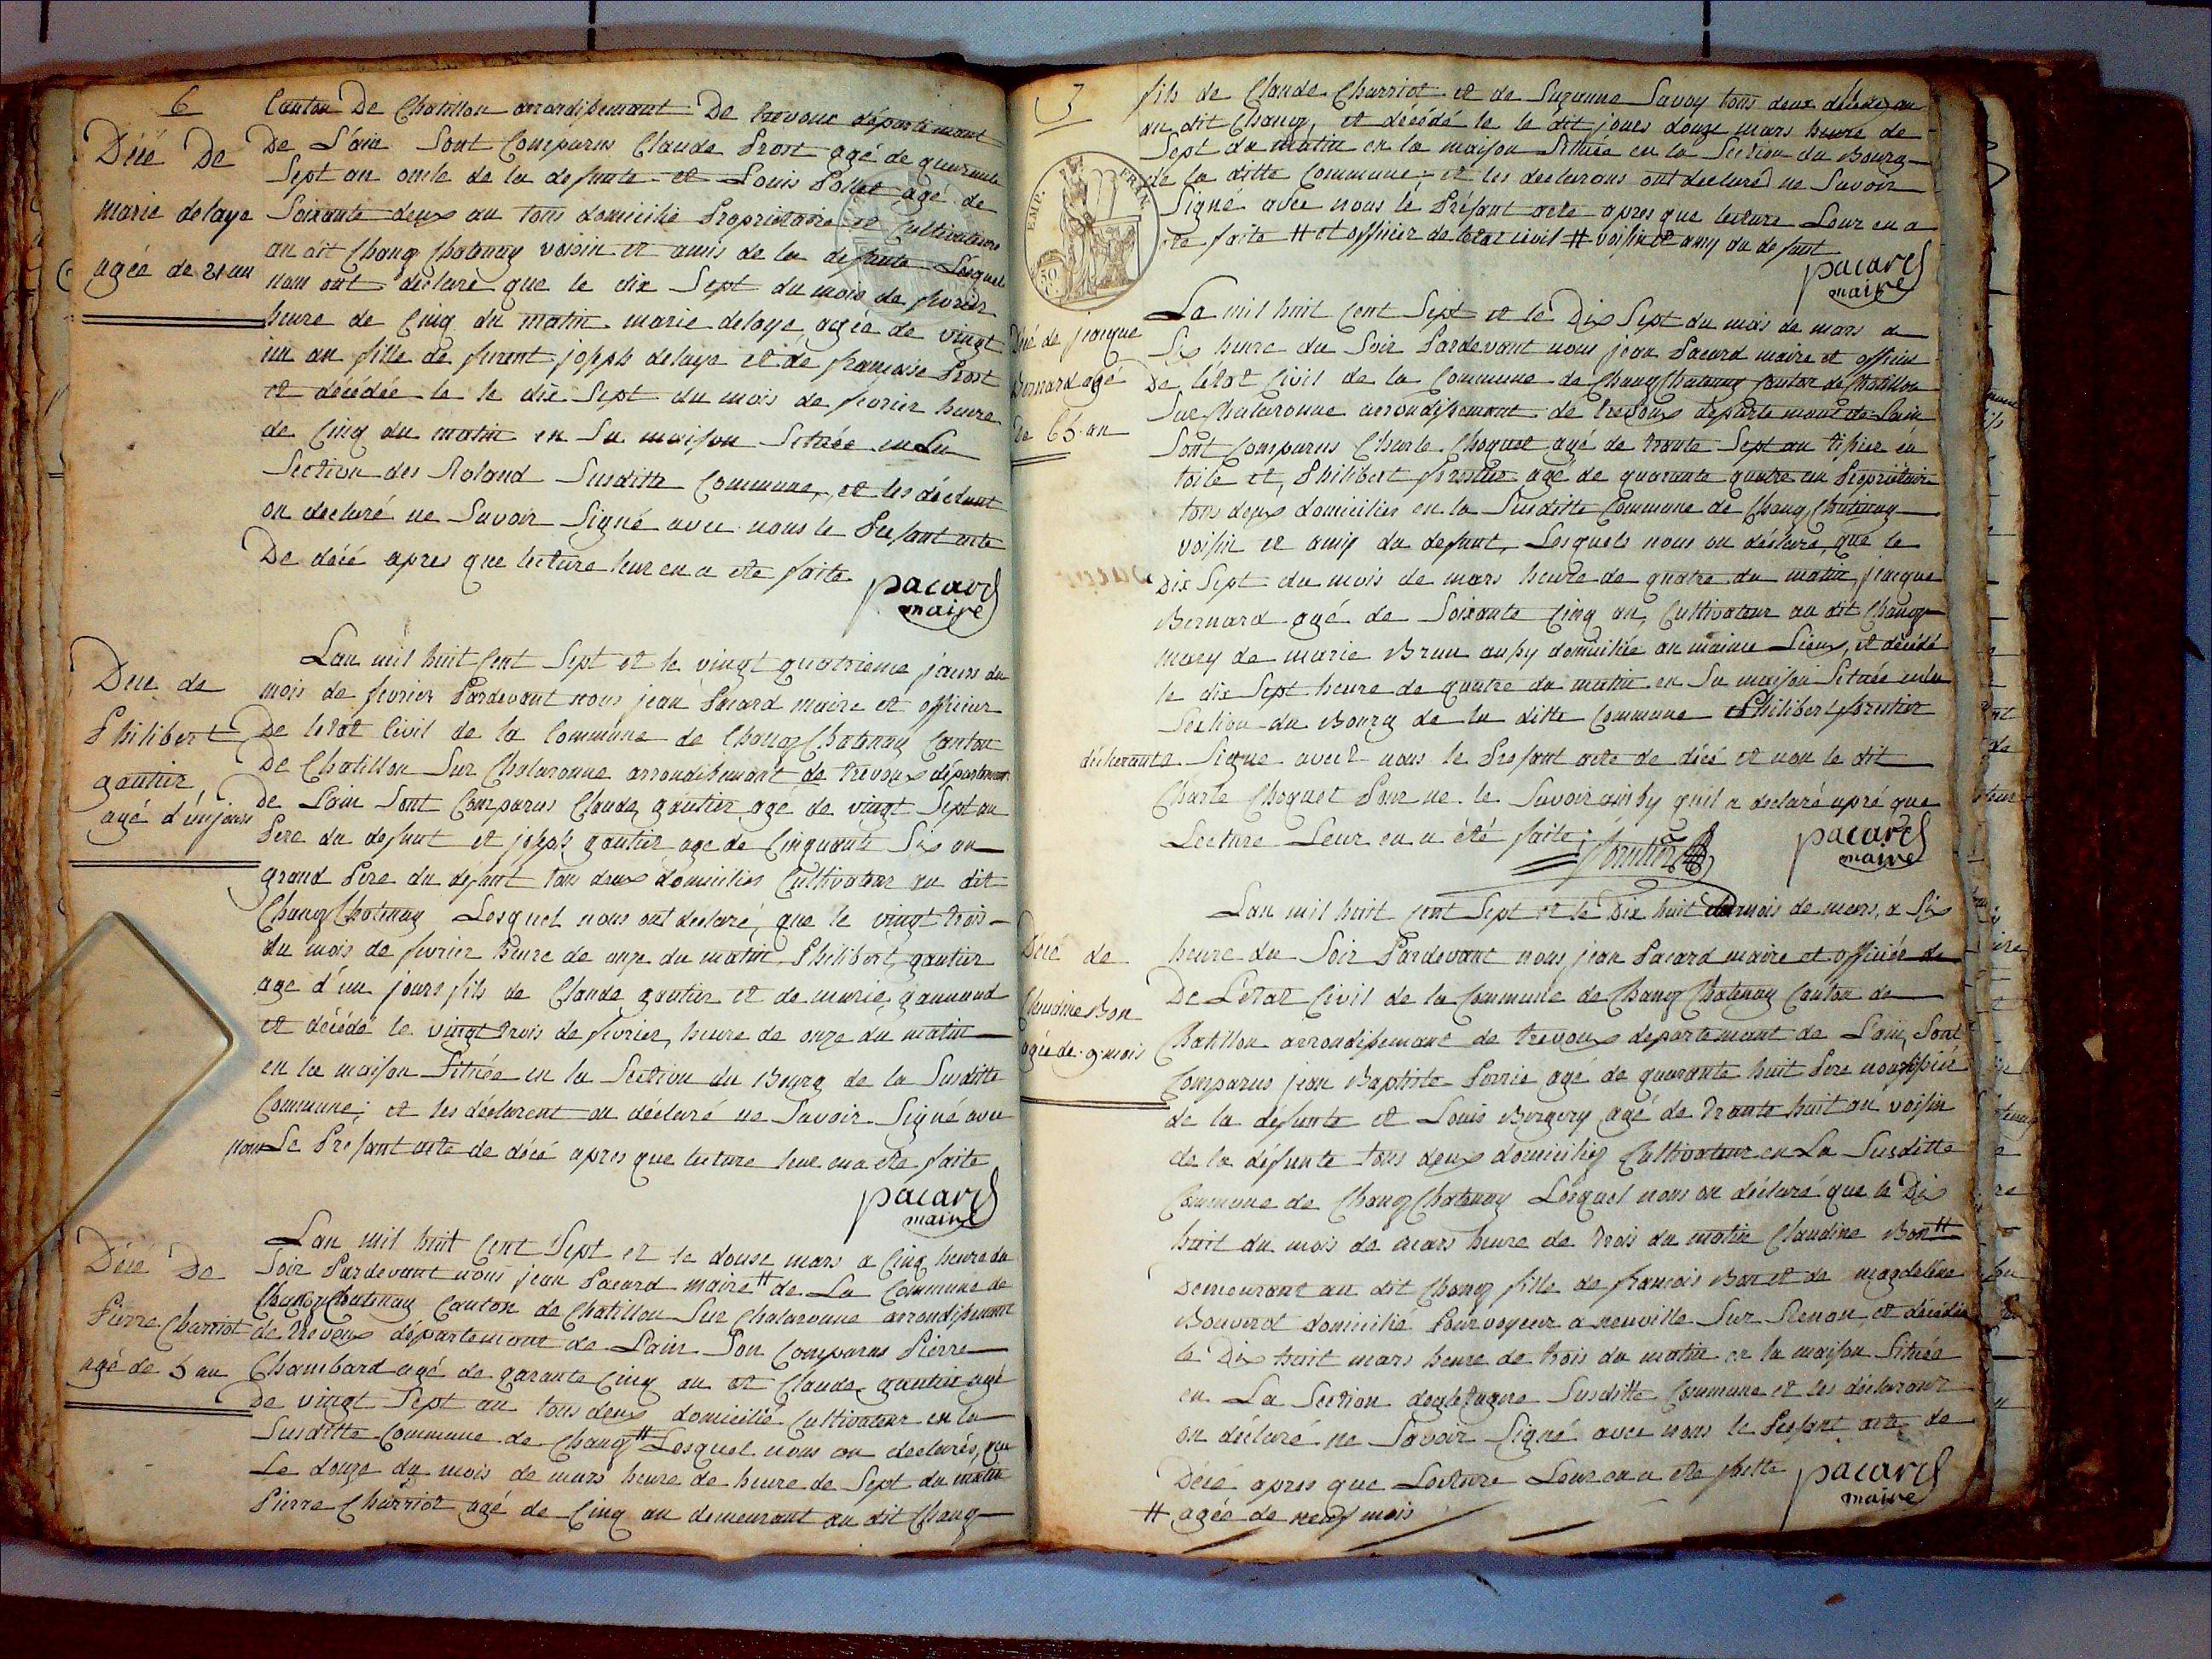 6
Canton De Chatillon arrondissemant De trevoux départemant
De L'ain Sont Comparus Claude Prost agé de quarante
Sept an oncle de la defunte et Louis Pollet agé de
Soixante deux an tous domicilié Propriétaire et Cultivateurs
au dit Chang Chatenay voisin et amis de la defunte Lesquel
nous ont déclaré que le dix Sept du mois de fevrier
heure de Cinq du matin marie delaye agée de vingt
un an fille de furent joseph delaye et de françoise Prost
et décédée le le dix Sept du mois de fevrier heure
de Cinq du matin en Sa maison Sittuée en La
Section des Roland Susditte Commune, et les déclarant
on declaré ne Savoir Signé avec nous le Presant acte
De décé apres que lecture leur en a ete faite
pacard
maire
Décé De
marie delaye
agée de 21 an
Lan mil huit Cent Sept et le vingt quatrieme jours du
mois de fevrier Pardevant nous jean Pacard maire et officier
De letat Civil de la Commune de Chang Chatenay Canton
De Chatillon Sur Chalaronne arrondissemant de trevoux département
de Lain Sont Comparus Claude gautier age de vingt Sept an
Pere du defunt et joseph gautier age de Cinquante Six an
grand Pere du défunt tous deux domicilies Cultivateur au dit
Chang Chatenay Lesquel nous ont declaré, que le vingt trois
du mois de fevrier heure de onze du matin Philibert gautier
age d'un jours fils de Claude gautier et de marie
et décédé le vingt trois de fevrier, heure de onze du matin
en la maison Sittuée en la Section du Bourg de la Susditte
Commune; et les déclarent on déclaré ne Savoir Signé avec
nous Le Présant acte de décé apres que lecture leur en a ete faite
pacard
maire
Décé de
Philibert
gautier
agé d'un jours
Lan mil huit Cent Sept et le douse mars a Cinq heure du
Soir Pardevant nous jean Pacard maire # de La Commune de
Chang Chatenay Canton de Chatillon Sur Chalaronne arrondissemant
de trevoux départemant de Lain Son Comparus Pierre
Chambard agé de quarante Cinq an et Claude gautier agé
De vingt Sept an tous deux domicilié Cultivateur en la
Susditte Commune de Chang # Lesquel nous on declarés, que
Le douze du mois de mars heure de heure de Sept du matin
Pierre Charriot agé de Cinq an demeurant au dit Chang
Décé De
Pierre Charriot
agé de 5 an
7
fils de Claude Charriot et de Suzanne Savoy tous deux
au dit Chang, et décédé le le dit jours douze mars heure de
Sept du matin en la maison Sittuée en la Section du Bourg
de la ditte Commune; et les declarans ont declaré ne Savoir
Signé avec nous le Présant acte apres que lecture Leur en a
ete faite # et officier de letat civil # voisin et amy du defunt
pacard
maire
EMP. FRAN.
50
La mil huit Cent Sept et le Dix Sept du mois de mars a
Six heure du Soir Pardevant nous jean Pacard maire et officier
De letat Civil de la Commune de Chang Chatenay Canton de Chatillon
Sur Chalaronne arrondissemant de trevoux departemant de Lain
Sont Comparus Charle Choquet agé de trante Sept an tissier en
toile et, Philibert forestier agé de quarante quatre an Propriétaire
tous deux domicilies en la Susditte Commune de Chang Chatenay
voisin et amis du defunt, Lesquels nous on déclaré, que le
Dix Sept du mois de mars heure de quatre du matin jacque
Bernard agé de Soixante Cinq an, Cultivateur au dit Chang
mary de marie Brun aussy domiciliée au maime Lieux, et décédé
le dix Sept heure de quatre du matin en Sa maison Sittuée en la
Section du Bourg de la ditte Commune et Philibert forestier
declarante Signe avec nous le Presant acte de décé et non le dit
Charle Choquet Pour ne le Savoir ainsy quil a declaré apré que
Lecture Leur en a été faite;
pacard
maire
Décé de jacque
Bernard agé
De 65 an
Lan mil huit Cent Sept et le Dix huit du mois de mars, a Six
heure du Soir Pardevant nous jean Pacard maire et officiée de
De L'etat Civil de la Commune de Chang Chatenay Canton de
Chatillon arrondissemant de trevoux departemant de Lain, Sont
Comparus jean Baptiste Perrie age de quarante huit Pere nourissié
de la défunte et Louis Bergery agé de trante huit an voisin
de la défunte tous deux domiciliés Cultivateur en La Susditte
Commune de Chang Chatenay Lesquel nous on déclaré que le Dix
huit du mois de mars heure de trois du matin Claudine Bon #
Demeurant au dit Chang fille de francois Bon et de magdeleine
Bouverat domicilié Pourvoyeur a neuville Sur Renon, et décédée
le Dix huit mars heure de trois du matin en la maison Sittuée
en La Section Susditte Commune et les déclarant
on déclaré ne Savoir Signé avec nous le Presant acte de
Décé apres que Lecture Leur en a ete faitte
pacard
maire
# agée de neuf mois
Décé de
Claudine Bon
agée de 9 mois